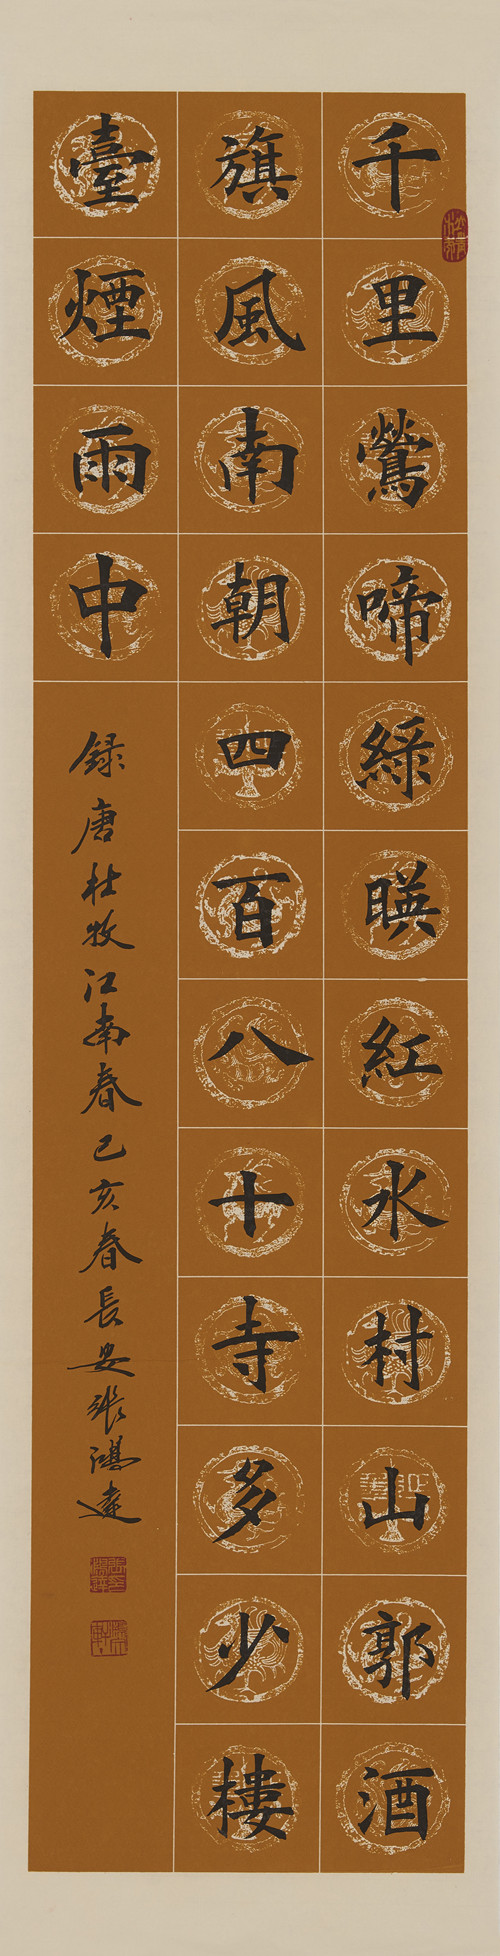 千里鶯啼綠暎紅水村山郭酒
旗風南朝四百八十寺多少樓
臺煙雨中
録唐杜牧江南春己亥春長安張鴻達